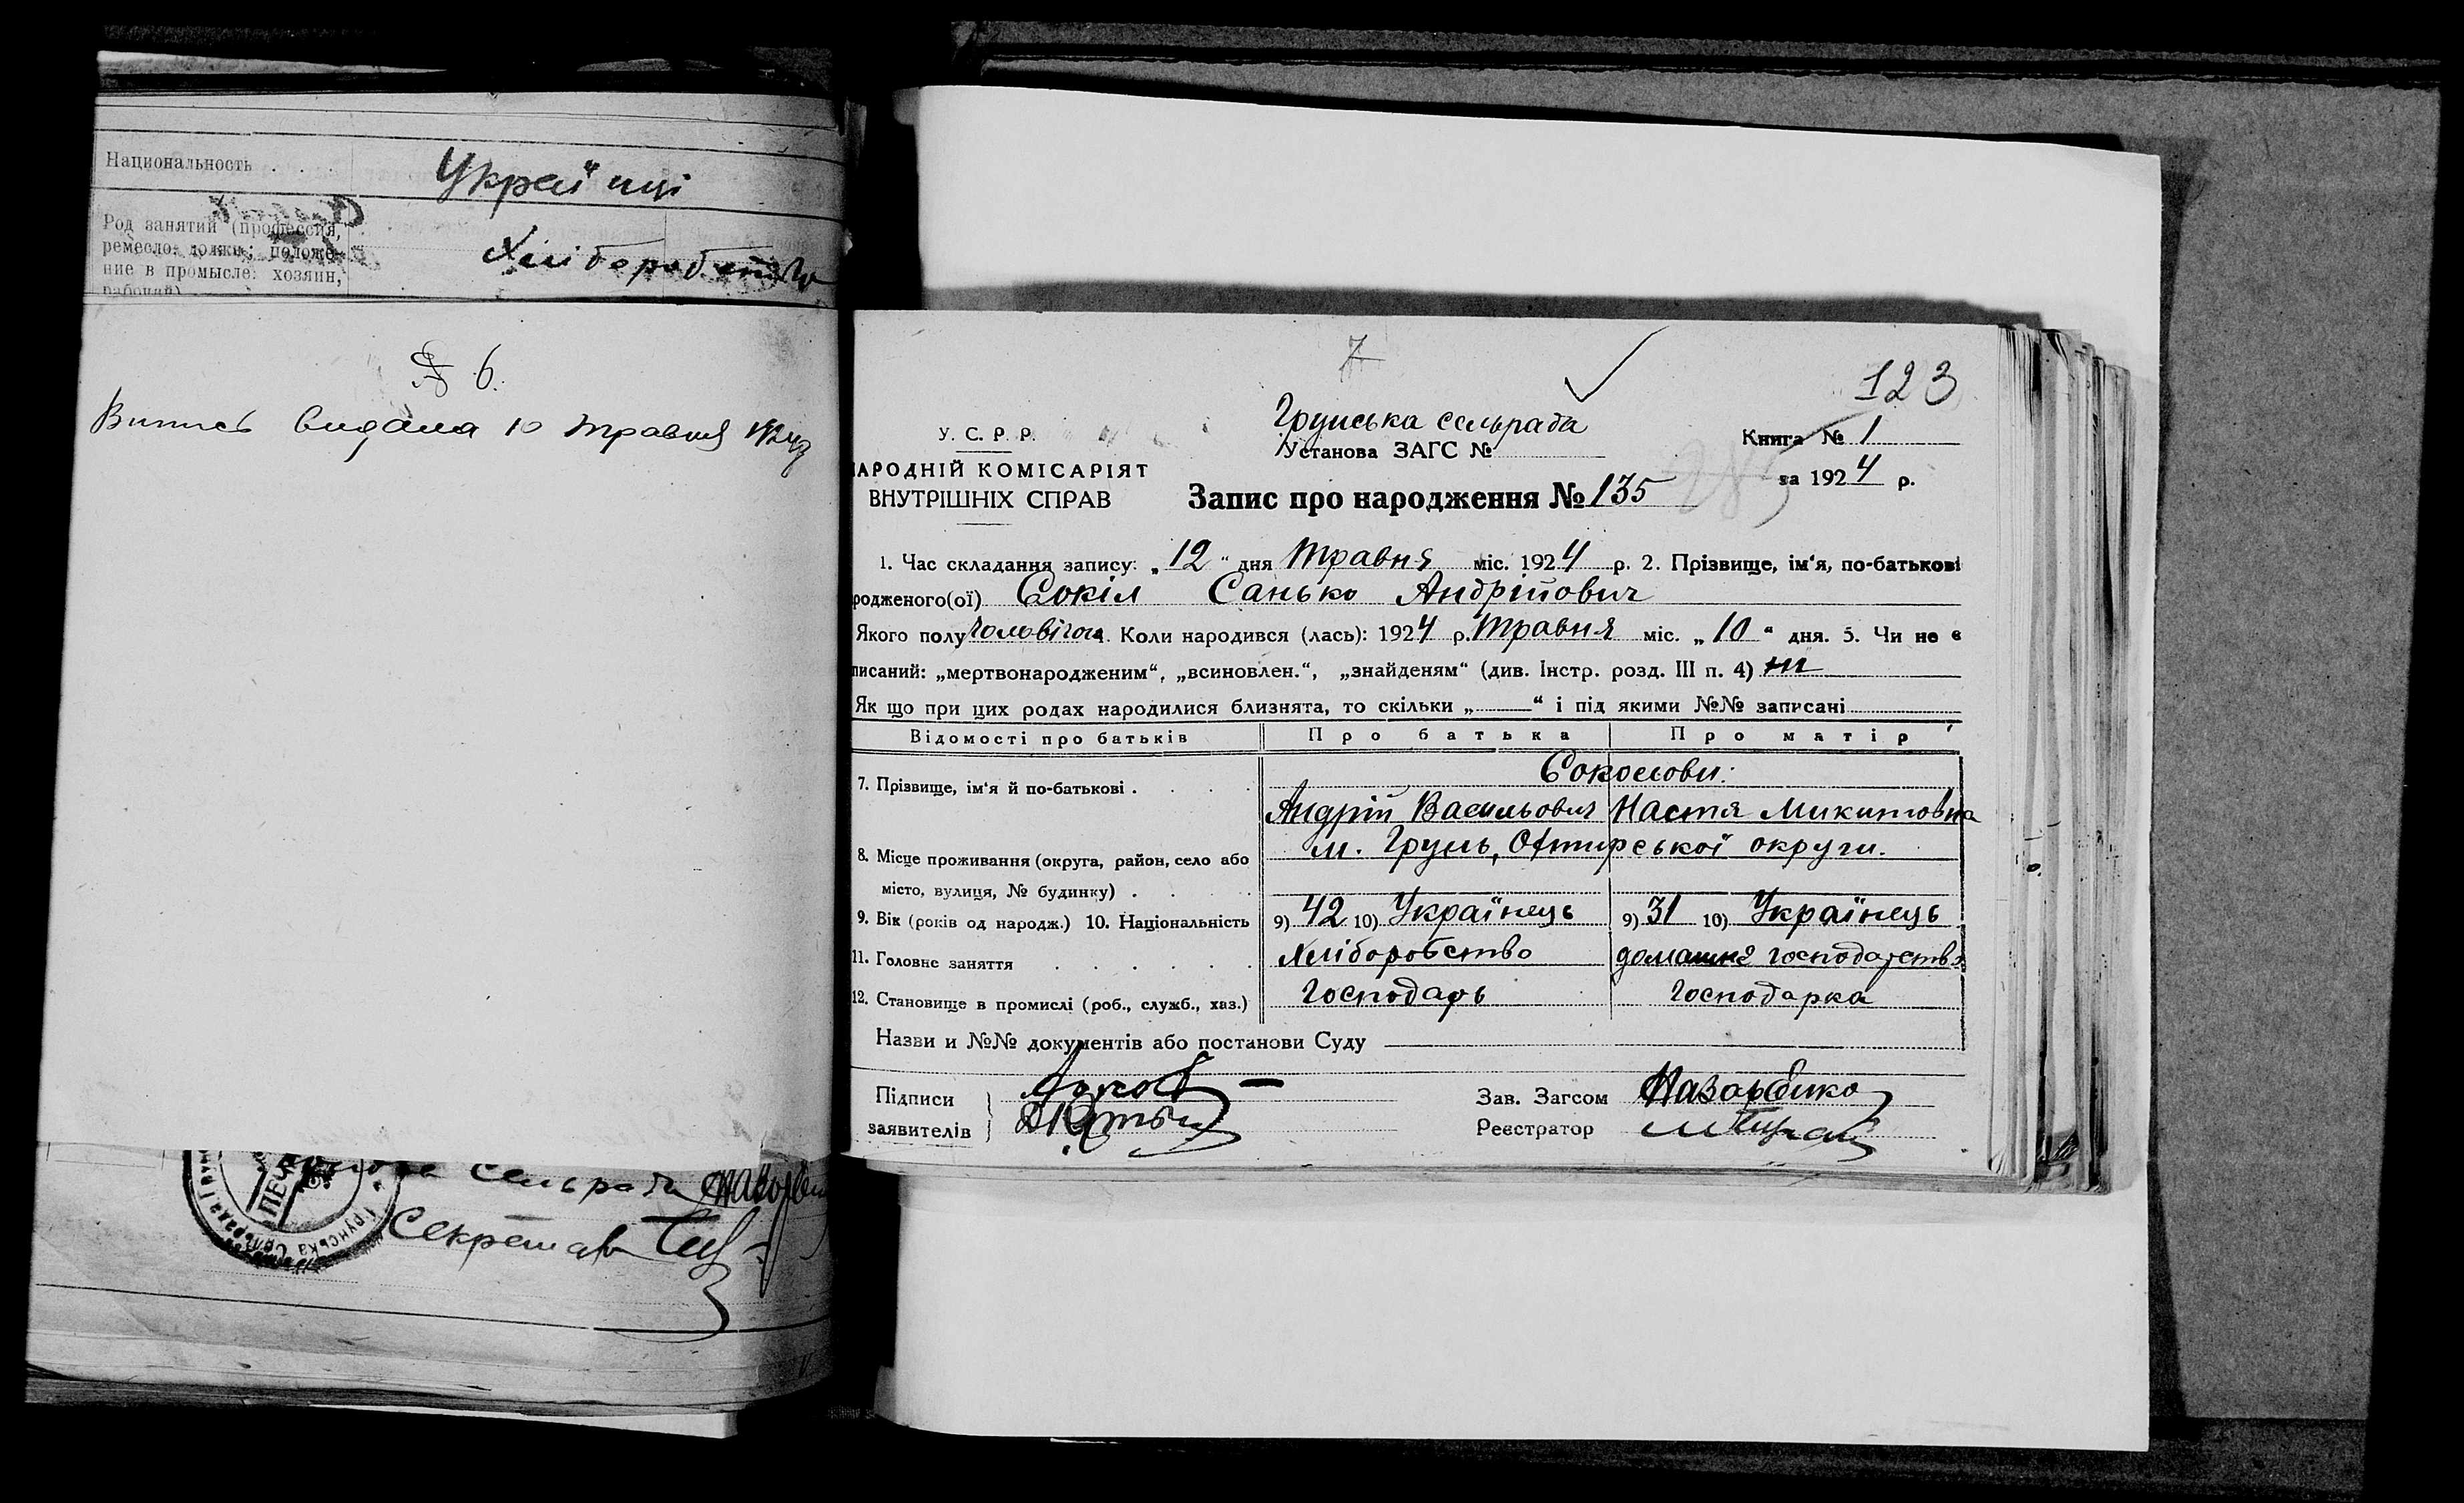 Национальность . . . .
Українці
Род занятий (профессия,
ремесло, должн.; положе-
ние в промысле: хозяин,
рабочий)
Хліборобство
№ 6.
Випись видана 10 травня
Сельради
Секретар
Грунська Сельрада
7
123
Грунська сельрада
У. С. Р. Р.
Установа ЗАГС №
Книга № 1
АРОДНІЙ КОМІСАРІЯТ
ВНУТРІШНІХ СПРАВ
за 1924 р.
Запис про народження № 135
1. Час складання запису: „12“ дня Травня міс. 1924 р. 2. Прізвище, ім‘я, по-батькові
родженого(ої) Сокіл Санько Андрійович
Якого полу Чоловічої 4. Коли народився (лась): 1924 р. Травня міс. „10“ дня. 5. Чи не є
писаний: „мертвонародженим“, „всиновлен.“, „знайденям“ (див. Інстр. розд. III п. 4) ні
Як що при цих родах народилися близнята, то скільки „ “ і під якими №№ записані
Відомості про батьків Про батька Про матір
Соколови:
7. Прізвище, ім‘я й по-батькові . . . .
Андрій Васильович Настя Микитовна
8. Місце проживання (округа, район, село або
м. Грунь, Охтирської округи.
місто, вулиця, № будинку) . . .
9. Вік (років од народж.) 10. Національність 9) 42 10) Українець 9) 31 10) Українець
11. Головне заняття . . . . . . Хліборобство домашнє господарство
12. Становище в промислі (роб., служб., хаз.) Господарь Господарка
Назви и №№ документів або постанови Суду
Підписи
заявителів
Зав. Загсом Назаренко
Реєстратор